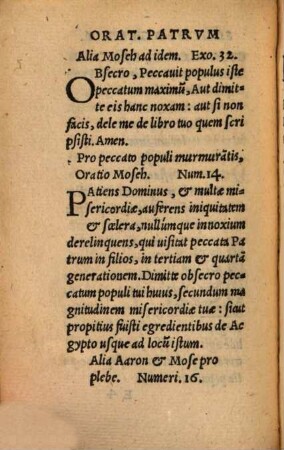 ORAT. PATRVM
Alia Moseh ad idem. Exo. 32.
OBsecro, Peccauit populus iste
peccatum maximũ, Aut dimit-
te eis hanc noxam: aut si non
facis, dele me de libro tuo quem scri
psisti. Amen.
Pro peccato populi murmurãtis,
Oratio Moseh. Num. 14.
PAtiens Dominus, & multæ mi-
sericordiæ, auferens iniquitatem
& scelera, nullúmque innoxium
derelinquens, qui uisitat peccata Pa
trum in filios, in tertiam & quartã
generationem. Dimitte obsecro pec-
catum populi tui huius, secundum ma
gnitudinem misericordiæ tuæ: sicut
propitius fuisti egredientibus de Ae
gypto usque ad locũ istum.
Alia Aaron & Mose pro
plebe. Numeri. 16.